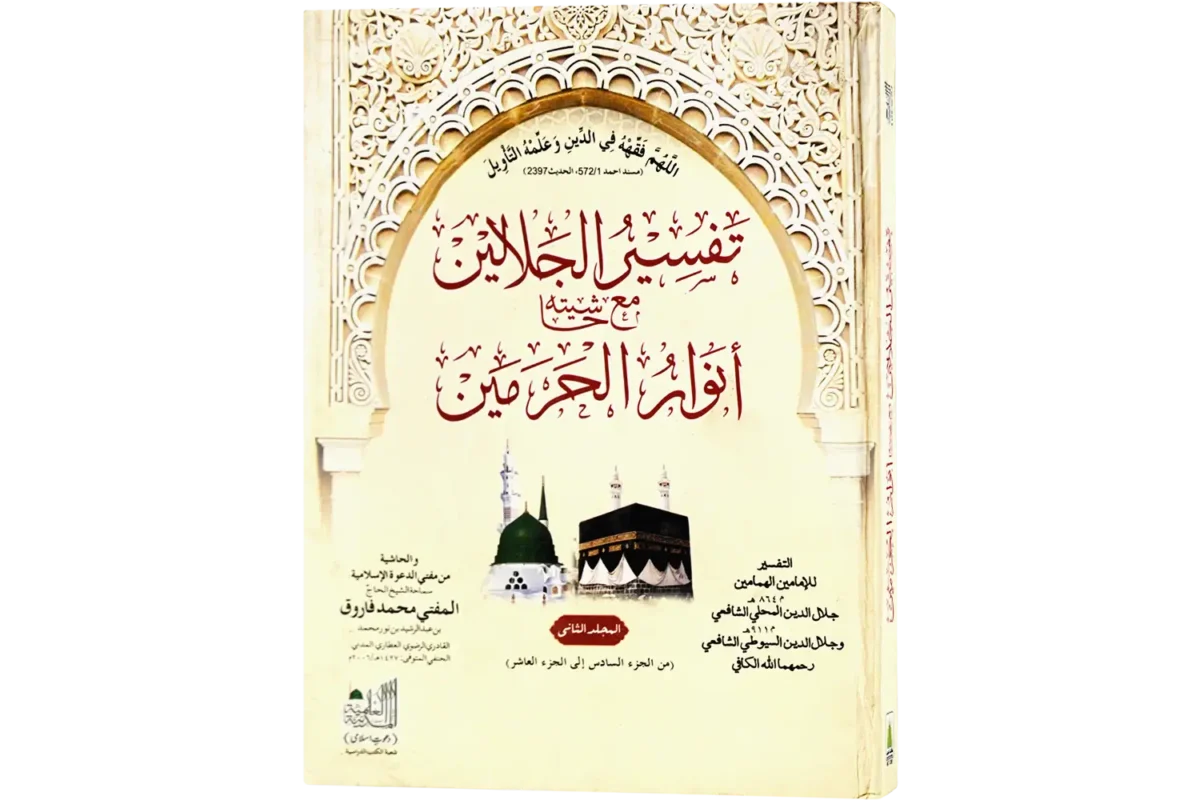 اَللّٰهُمَّ فَقِّهْهُ فِي الدِّينِ وَعَلِّمْهُ التَّأْوِيلَ
(مسند احمد 572/1، الحديث 2397)
تَفْسِيْرُ الْجَلَالَيْن
مَعَ حَاشِيَتِه
أَنْوَارُ الْحَرَمَيْن
التفسير
للإمامين الهمامين
م ٨٦٤ هـ
جلال الدين المحلي الشافعي
م ٩١١ هـ
وجلال الدين السيوطي الشافعي
رحمهما الله الكافي
والحاشية
من مفتي الدعوة الإسلامية
سماحة الشيخ الحاج
المفتي محمد فاروق
بن عبد الرشيد بن نور محمد
القادري الرضوي العطاري المدني
الحنفي المتوفى: ١٤٢٧هـ/٢٠٠٦م
المجلد الثاني
(من الجزء السادس إلى الجزء العاشر)
المدينة العلمية
(دعوت اسلامی)
شعبة الكتب الدراسية